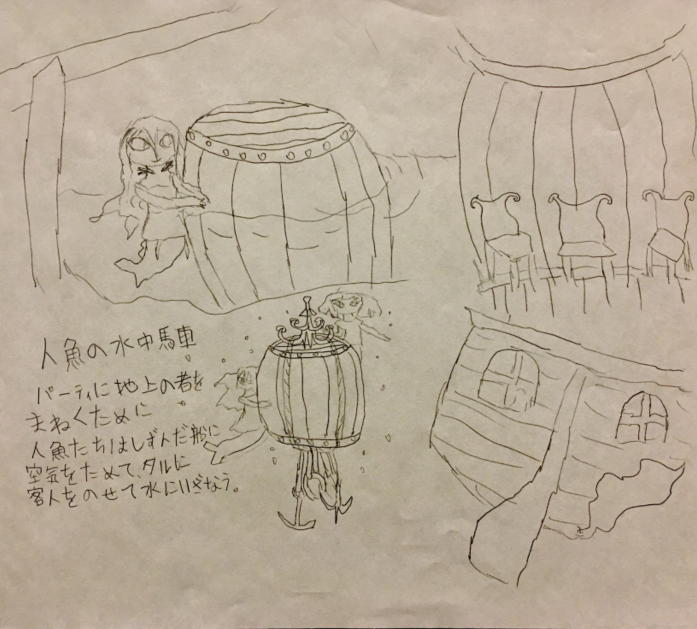 人魚の水中馬車
パーティに地上の者を
まねくために
人魚たちはしずんだ船に
空気をためて、タルに
客人をのせて水にいざなう。